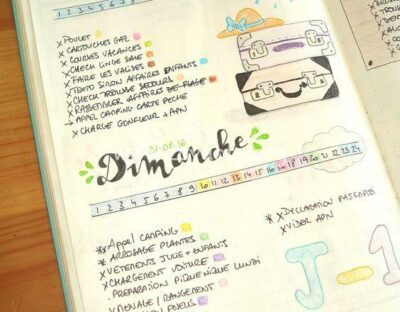 1 2 3 4 5 6 7 8
x POULET
x CARTOUCHES GAZ
x COURSES VACANCES
x CHECK LINGE SALE
x FAIRE LES VALISES
x TOPO SIMON AFFAIRES ENFANTS
x CHECK TROUSSE SECOURS
x RASSEMBLER AFFAIRES DE PLAGE
→ APPEL CAMPING CARTE PECHE
x CHARGE GONFLEUR + APN
21-08-16
Dimanche
1 2 3 4 5 6 7 8 9 10 11 12 13 14 15 16 17 18 19 20 21 22 23 24
*x APPEL CAMPING
*x ARROSAGE PLANTES
x VETEMENTS JULIE + ENFANTS
x CHARGEMENT VOITURE
. PREPARATION PIQUE NIQUE LUNDI
x MENAGE / RANGEMENT
PNEUS
*x DECLARATION
x VIDER APN
J-1